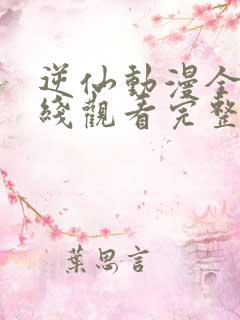 逆仙動漫全
綫觀看完整
葉思言